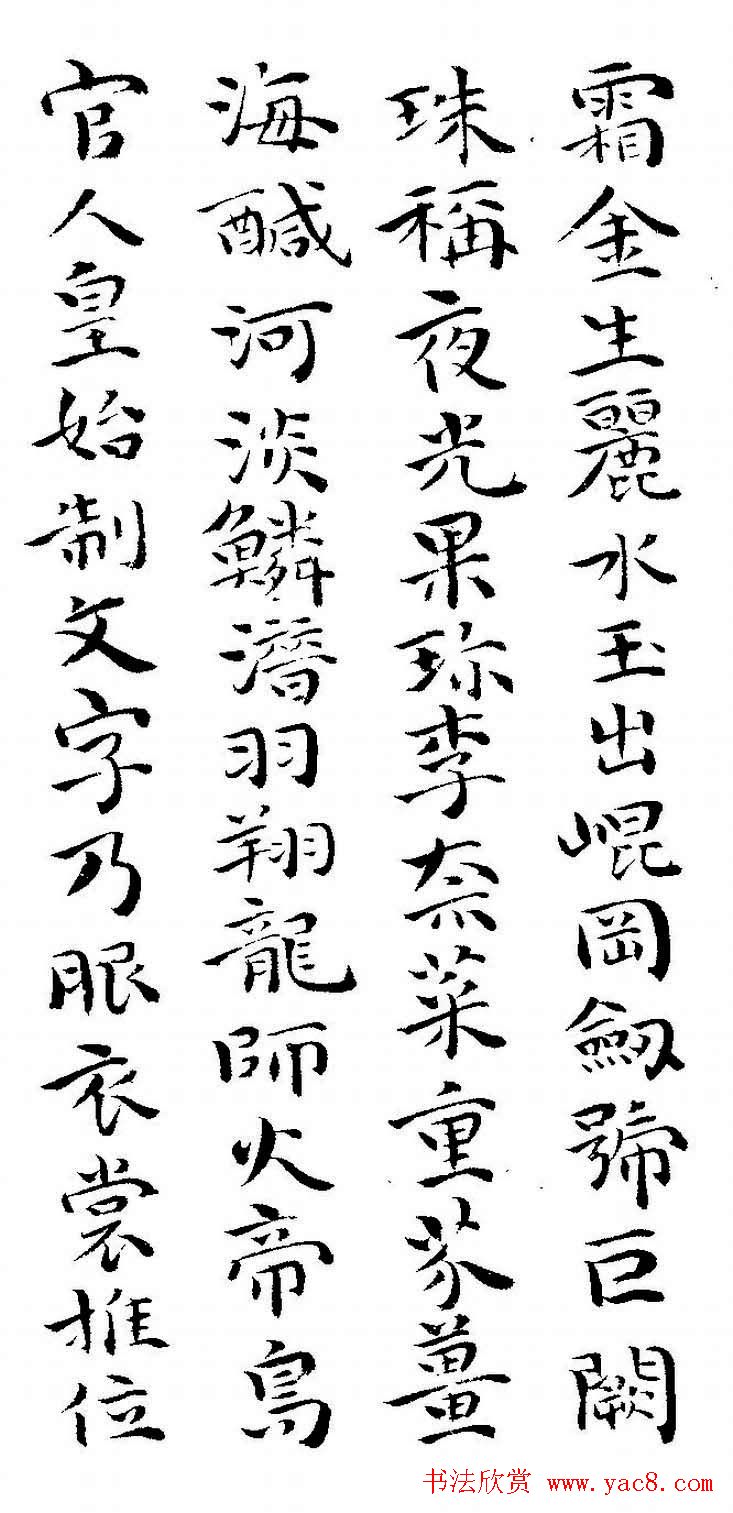 霜金生麗水玉出崐岡劒號巨闕
珠稱夜光果珎李奈菜重芥薑
海醎河淡鱗潛羽翔龍師火帝鳥
官人皇始制文字乃服衣裳推位
书法欣赏 www.yac8.com